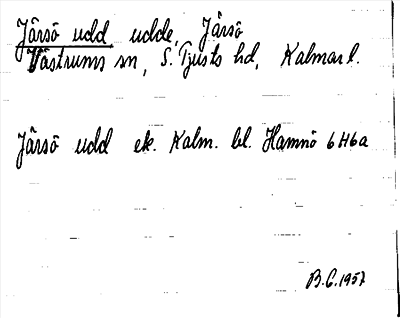 Järsö udd udde, Järsö
Västrums sn, S. Tjusts hd, Kalmar l.
Järsö udd ek. Kalm. bl. Hamnö 6H6a
B.G. 1957